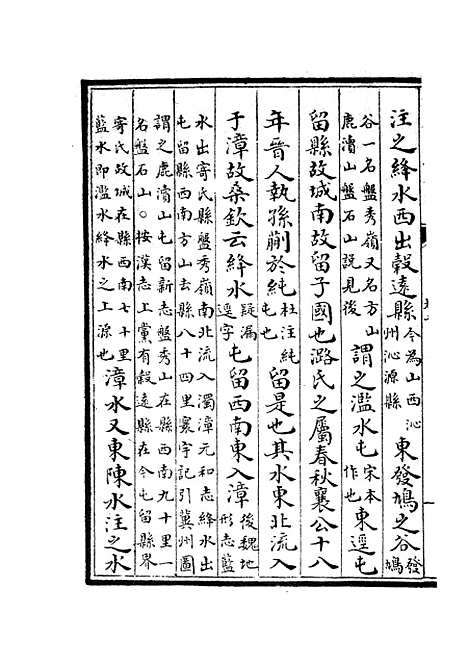 注之絳水西出穀遠縣今為山西沁州沁源縣東發鳩之谷發鳩
谷一名盤秀嶺又名方山鹿瀆山盤石山說見後謂之濫水屯宋本作也東逕屯
留縣故城南故留子國也潞氏之屬春秋襄公十八
年晉人執孫蒯於純杜注純屯也留是也其水東北流入
于漳故桑欽云絳水疑漏逕字屯留西南東入漳後魏地形志藍
水出寄氏縣盤秀嶺南北流入濁漳元和志絳水出屯留縣西南方山去縣八十四里寰宇記引冀州圖
謂之鹿瀆山屯留新志盤秀山在縣西南九十里一名盤石山○按漢志上黨有穀遠縣在今屯留縣界
寄氏故城在縣西南七十里藍水即濫水絳水之上源也漳水又東陳水注之水